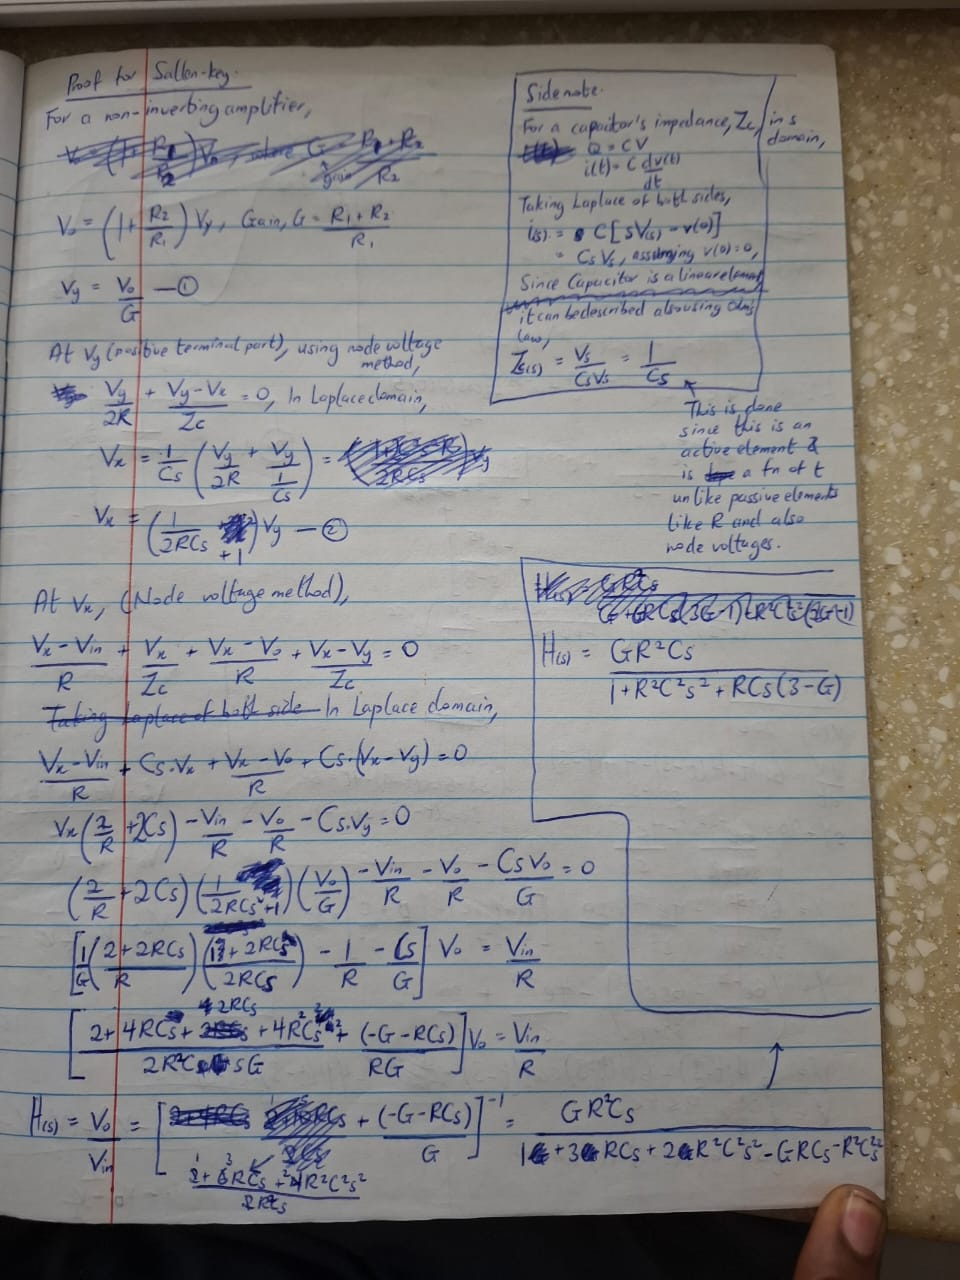 Proof for Sallen-key.
For a non-inverting amplifier,
V₀ = (1 + R₂/R₁) Vy, Gain, G = (R₁ + R₂)/R₁
Vy = V₀/G — ①
At Vy (positive terminal part), using node voltage
method,
Vy/2R + (Vy - Vx)/Zc = 0, In Laplace domain,
Vx = 1/Cs (Vy/2R + Vy/(1/Cs)) =
Vx = (1/2RCs + 1) Vy — ②
At Vx, (Node voltage method),
(Vx - Vin)/R + Vx/Zc + (Vx - V₀)/R + (Vx - Vy)/Zc = 0
In Laplace domain,
(Vx - Vin)/R + Cs·Vx + (Vx - V₀)/R + Cs·(Vx - Vy) = 0
Vx (2/R + 2Cs) - Vin/R - V₀/R - Cs·Vy = 0
(2/R + 2Cs)(1/2RCs + 1)(V₀/G) - Vin/R - V₀/R - CsV₀/G = 0
[1/G ((2 + 2RCs)/R) ((1 + 2RCs)/2RCs) - 1/R - Cs/G] V₀ = Vin/R
[(2 + 4RCs + 2RCs + 4R²C²s²)/2R²CsG + (-G - RCs)/RG] V₀ = Vin/R
H(s) = V₀/Vin = [(1 + 3RCs + 2R²C²s²)/RCs + (-G - RCs)/G]⁻¹ = GR²Cs/(1 + 3RCs + 2R²C²s² - GRCs - R²C²s²)
Side note.
For a capacitor's impedance, Zc, in s
domain,
Q = CV
i(t) = C dv(t)/dt
Taking Laplace of both sides,
i(s) = C[sV(s) - v(0)]
= CsVs, assuming v(0) = 0,
Since Capacitor is a linear element
it can be described also using Ohm's
law,
Zc(s) = Vs/CsVs = 1/Cs
This is done
since this is an
active element &
is a fn of t
unlike passive elements
like R and also
node voltages.
H(s) = GR²Cs/(1 + R²C²s² + RCs(3 - G))